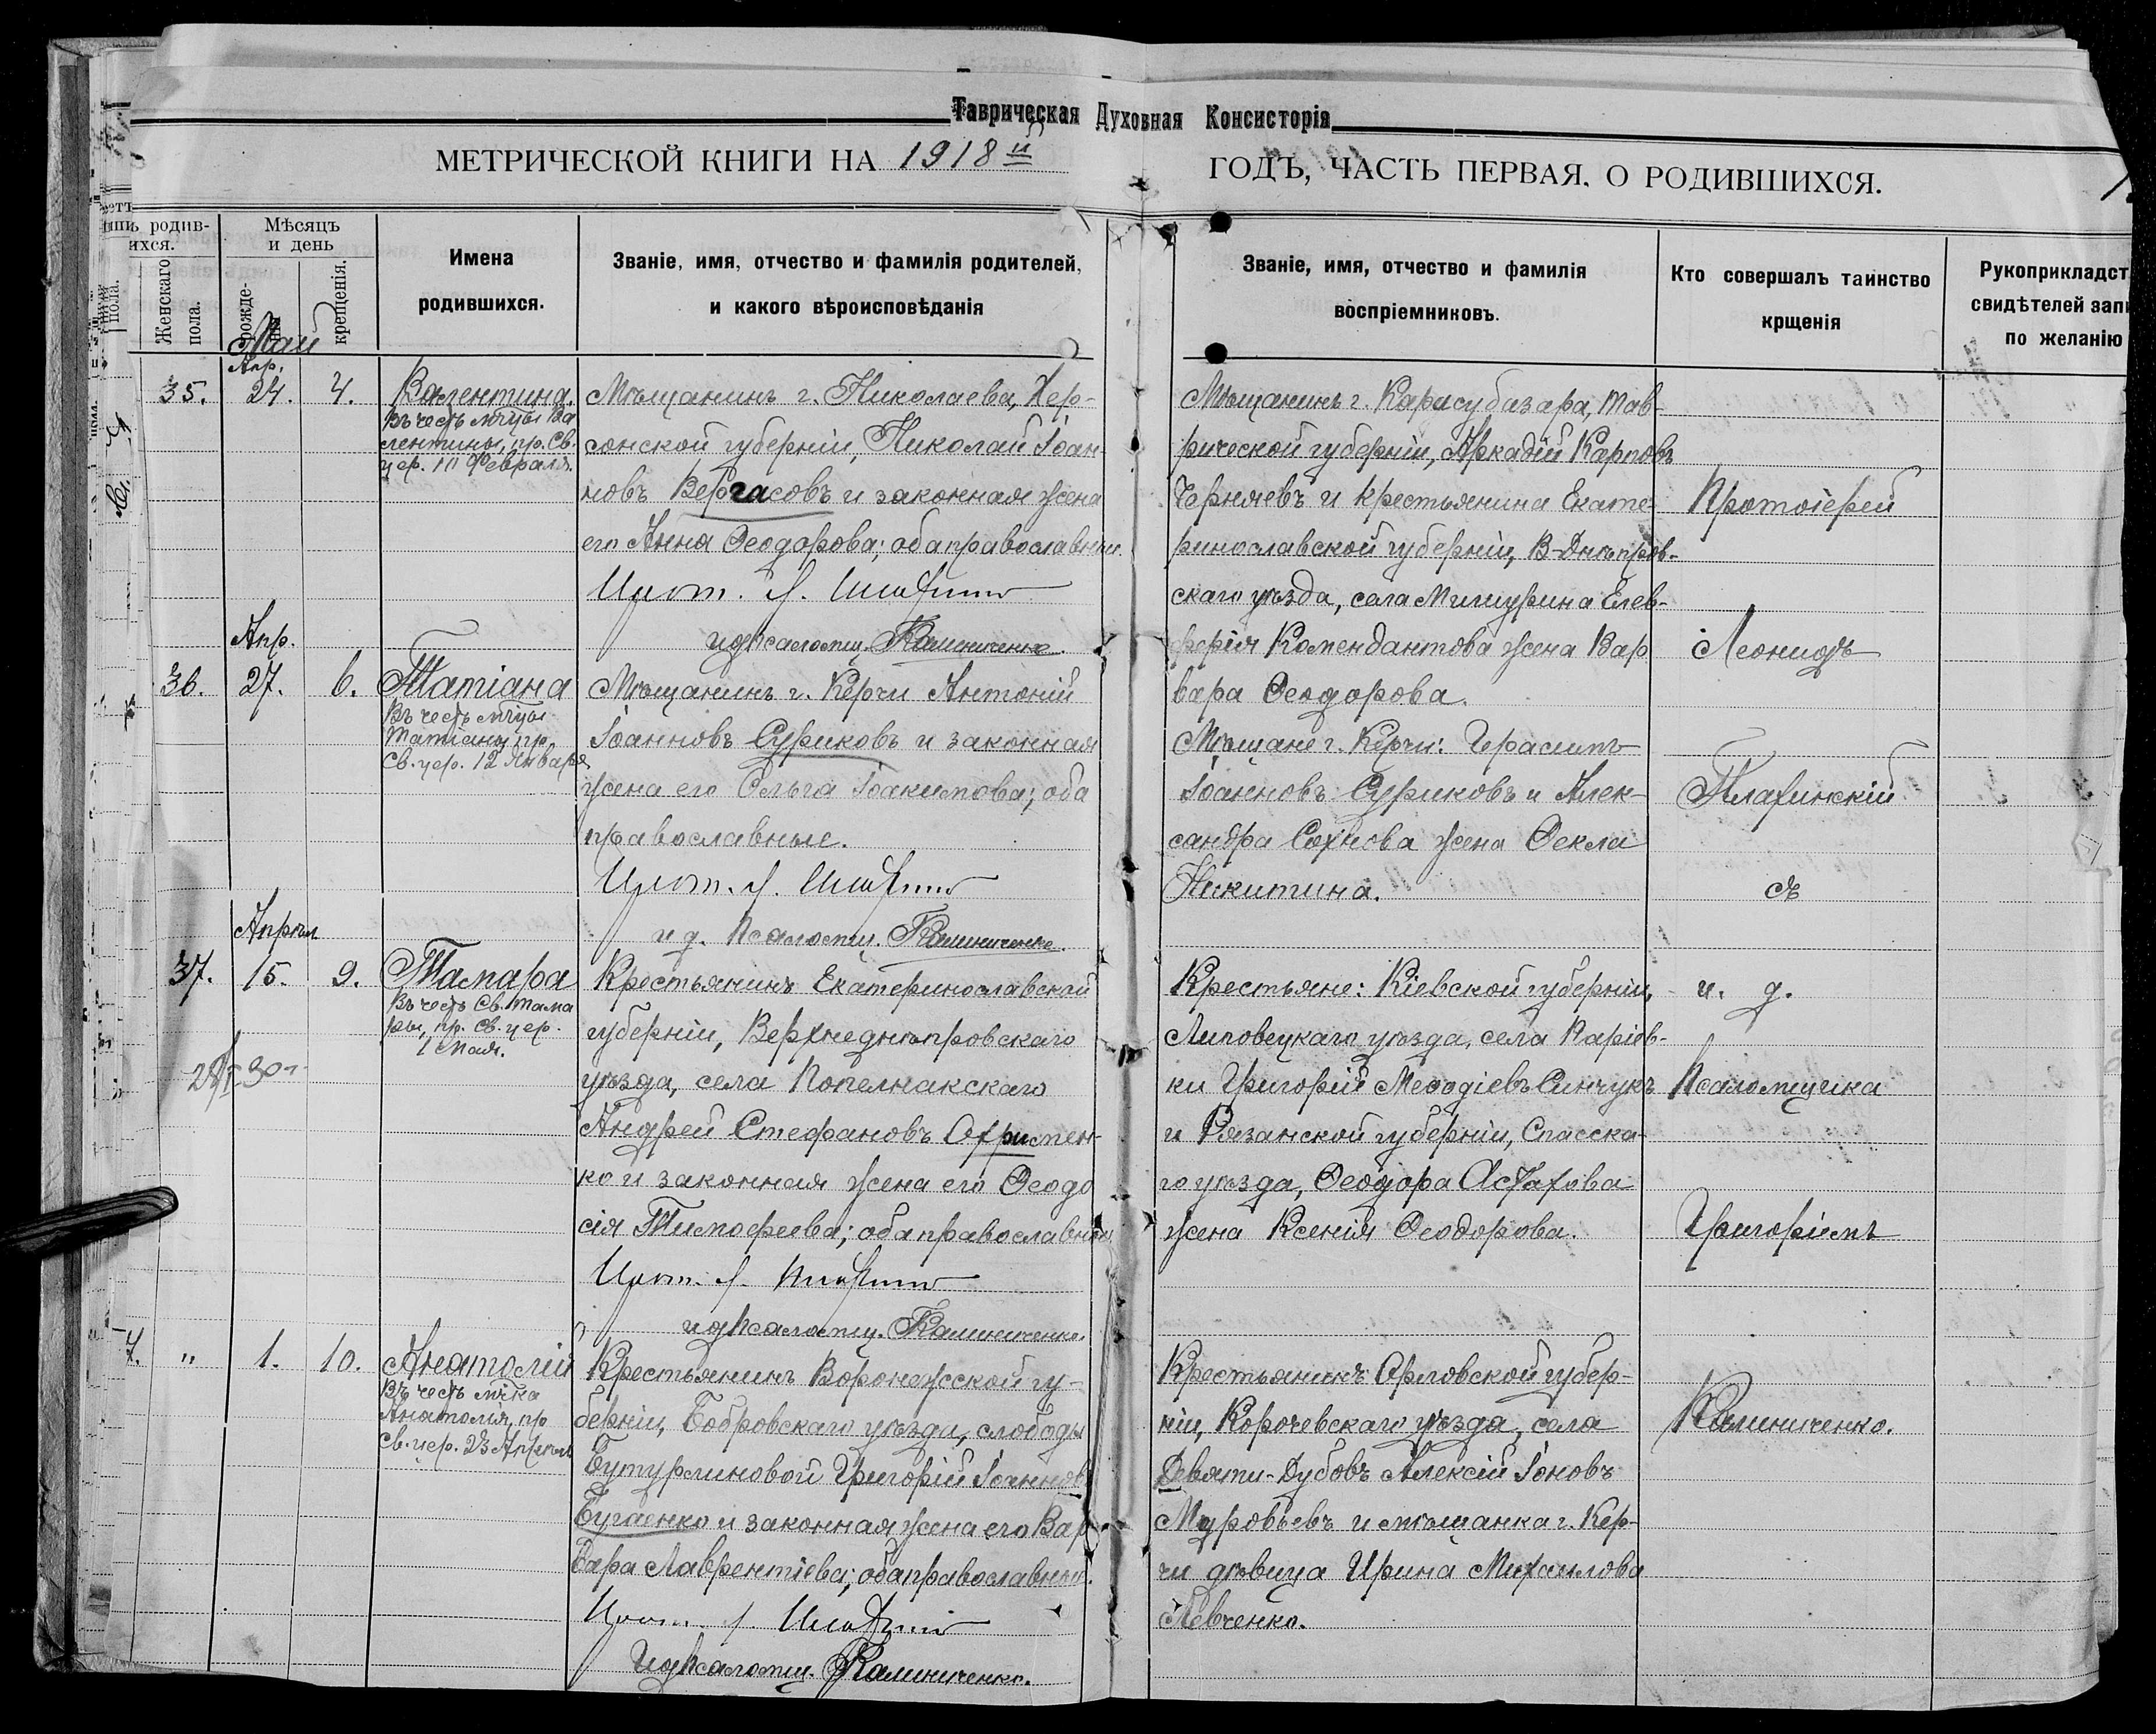 Таврическая Духовная Консисторія
МЕТРИЧЕСКОЙ КНИГИ НА 1918й
ГОДЪ, ЧАСТЬ ПЕРВАЯ, О РОДИВШИХСЯ.
родив-
ихся.
Женскаго
пола.
Мѣсяцъ
и день
рожде-
крещенія.
Имена
родившихся.
Званіе, имя, отчество и фамилія родителей,
и какого вѣроисповѣданія
Званіе, имя, отчество и фамилія
воспріемниковъ.
Кто совершалъ таинство
крщенія
Рукоприкладст
свидѣтелей запи
по желанію
Май
Апр.
35. 24. 4.
Валентина.
Въ честь мчцы Ва
лентины, пр. Св.
цер. 10 Февраля.
Мѣщанинъ г. Николаева, Хер-
сонской губерніи, Николай Іоан-
новъ Вергасовъ и законная жена
его Анна Ѳеодорова; оба православные.
Прот. Л.
Псаломщ. Калиниченко.
Мѣщанинъ г. Карасубазара, Тав-
рической губерніи, Аркадій Карповъ
Черняевъ и крестьянина Екате-
ринославской губерніи, В-Днѣпров-
скаго уѣзда, села Мишурина Елев-
ферія Комендантова жена Вар
вара Ѳеодорова.
Апр.
36. 27. 6.
Татіана
Въ честь мчцы
Татіаны, пр.
Св. цер. 12 Января
Мѣщанинъ г. Керчи Антоній
Іоанновъ Суриковъ и законная
жена его Ольга Іоакимова; оба
православные.
Прот. Л.
и д. Псаломщ. Калиниченко.
Мѣщане г. Керчи: Герасимъ
Іоанновъ Суриковъ и Алек-
сандра Сохнова жена Ѳекла
Никитина.
Апрѣл
37. 15. 9.
Тамара
Въ честь Св. Тама
ры, пр. Св. цер.
1 Мая.
Крестьянинъ Екатеринославской
губерніи, Верхнеднѣпровскаго
уѣзда, села Попелнакскаго
Андрей Стефановъ Охримен-
ко и законная жена его Ѳеодо
сія Тимофеева; оба православные
Прот. Л.
и д Псаломщ. Калиниченко
Крестьяне: Кіевской губерніи,
Липовецкаго уѣзда, села Паріев-
ки Григорій Меѳодіевъ Синчукъ
и Рязанской губерніи, Спасска-
го уѣзда, Ѳеодора Астахова
жена Ксенія Ѳеодорова.
7. " 1. 10.
Анатолій
Въ честь мчка
Анатолія, пр
Св. цер. 23 Апрѣля
Крестьянинъ Воронежской гу-
берніи, Бобровскаго уѣзда, слободы
Бутурлиновой Григорій Іоаннов
Бугаенко и законная жена его Вар
вара Лаврентіева; оба православные.
Прот. Л.
и д Псаломщ. Калиниченко.
Крестьянинъ Орловской губер-
ніи, Корочевскаго уѣзда, села
Девяти-Дубовъ Алексій Іоновъ
Муровьевъ и мѣщанка г. Кер-
чи дѣвица Ирина Михаилова
Левченко.
Протоіерей
Леонидъ
съ
и. д.
Псаломщика
Григоріемъ
Калиниченко.